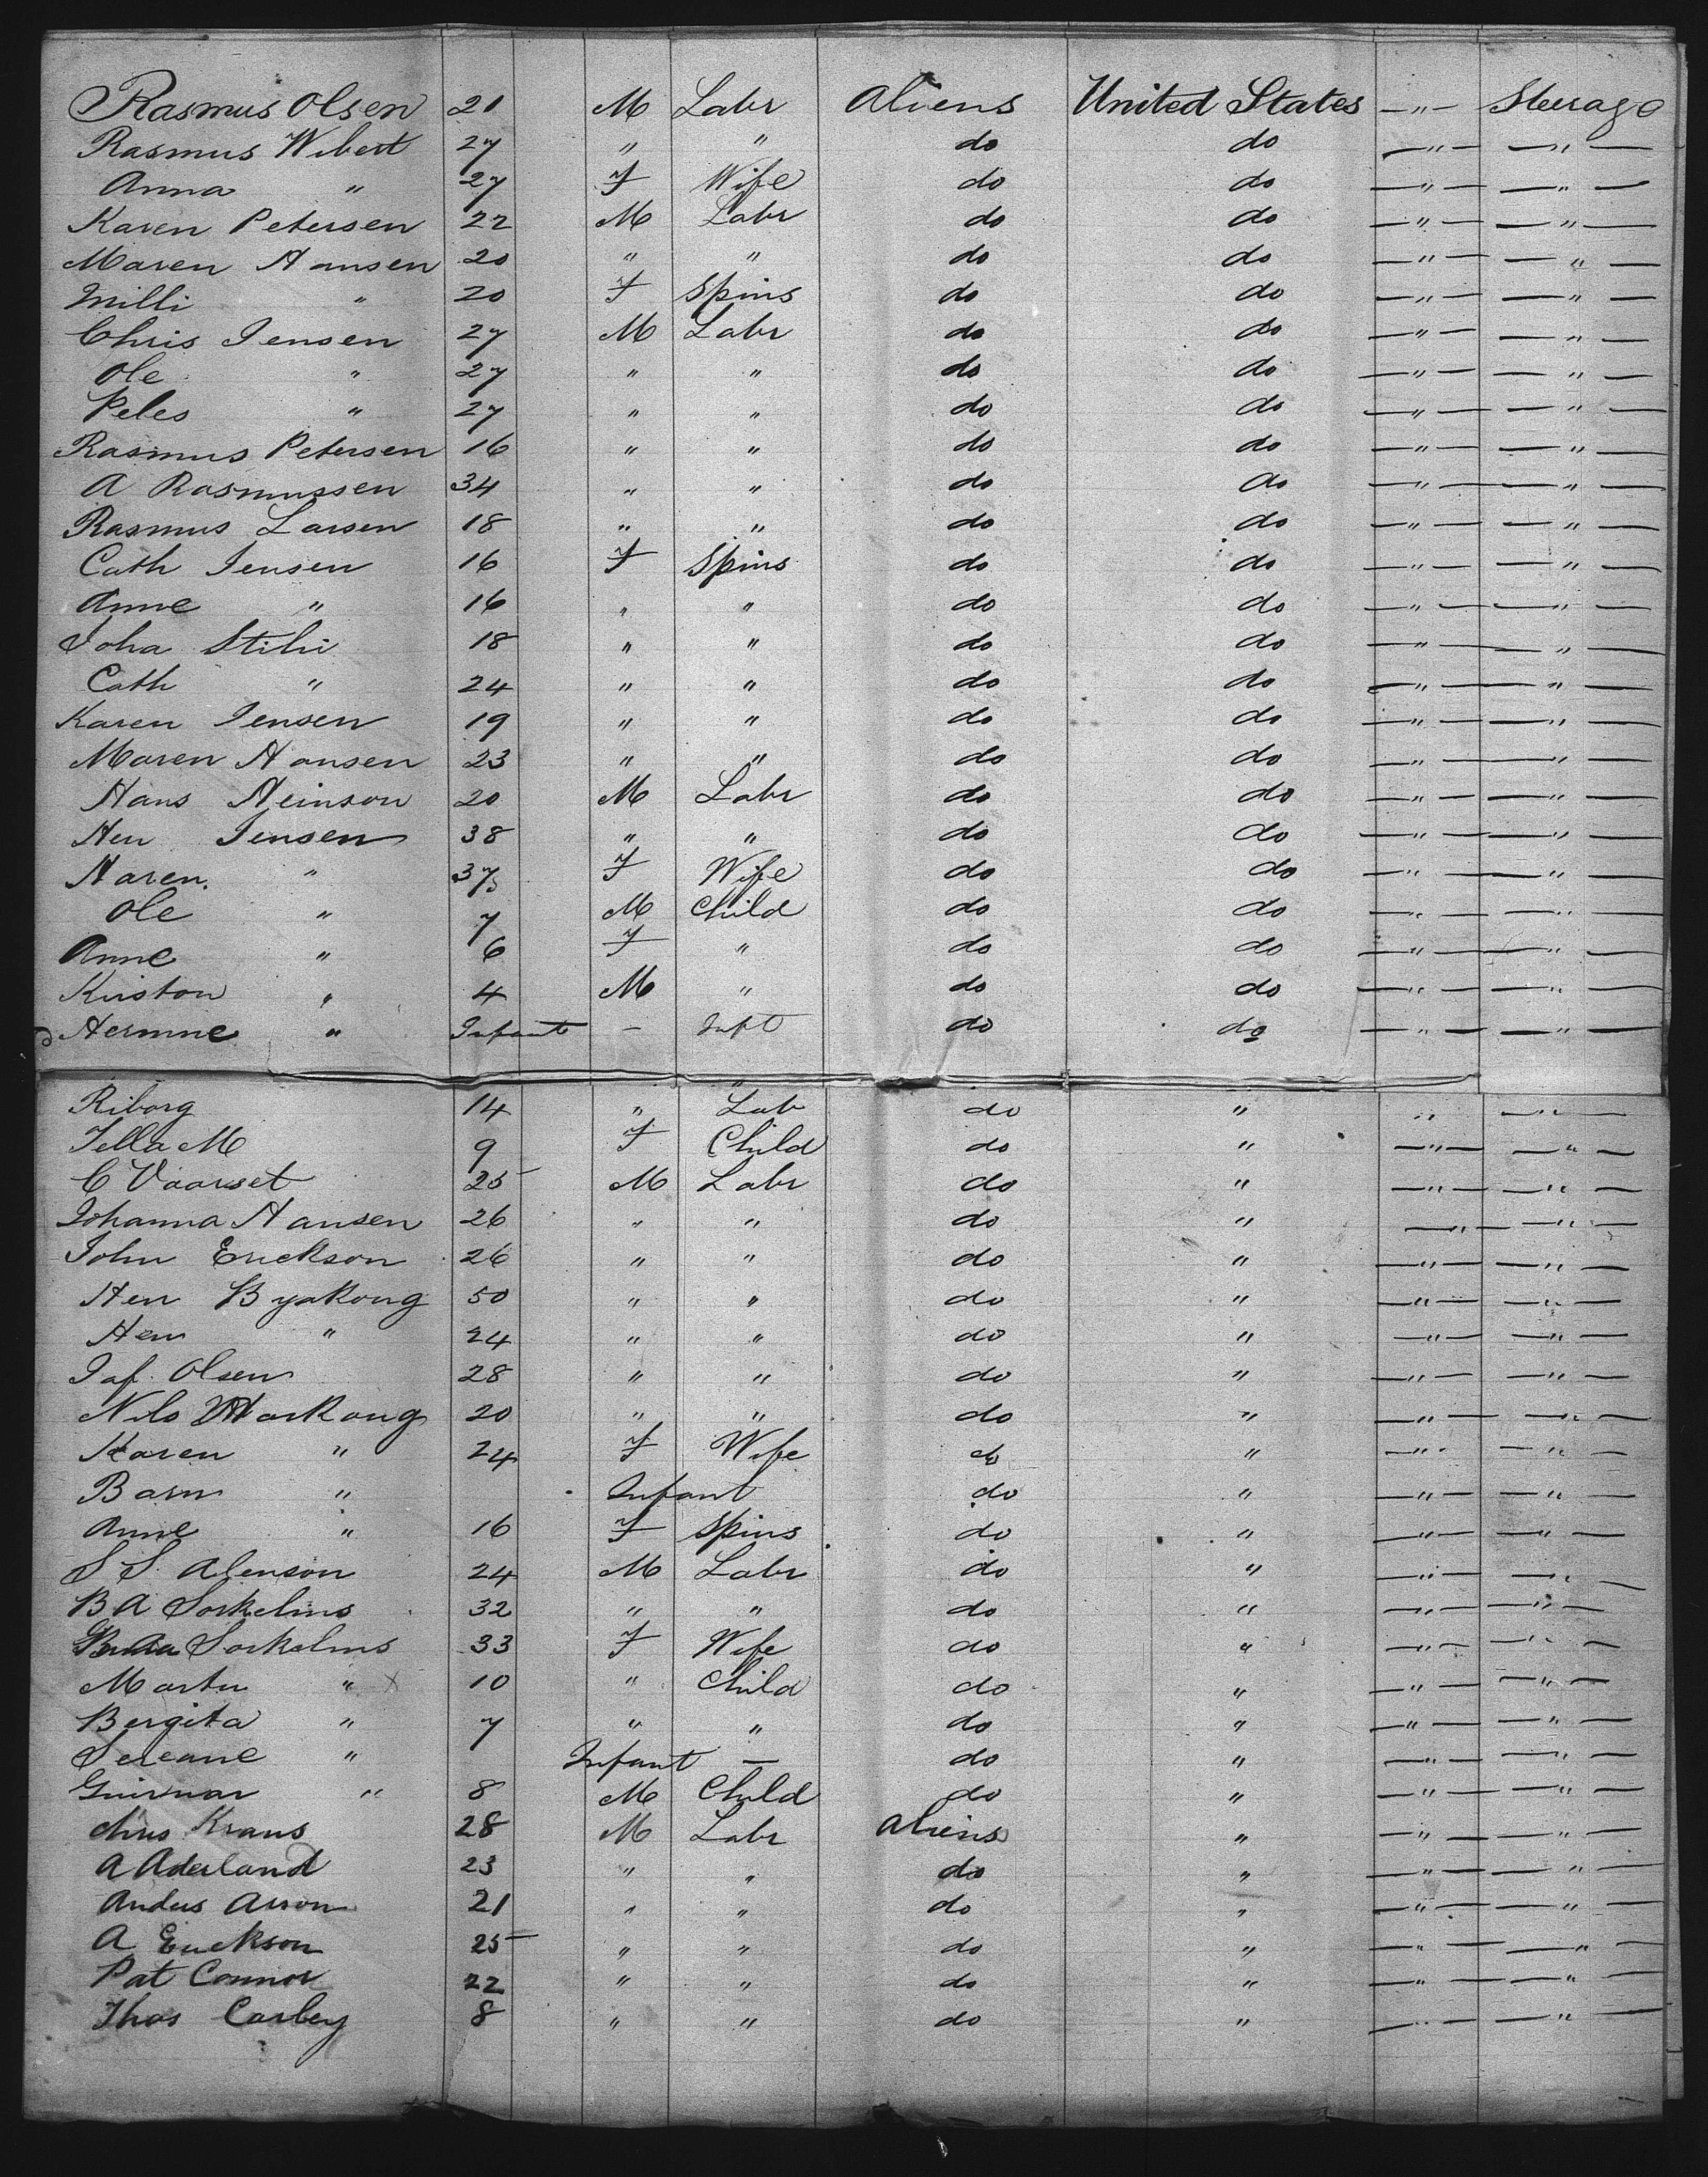 Rasmus Olsen 21 M Labr Aliens United States —"— Steerage
Rasmus Wibert 27 " " do do —"— —"—
Anna " 27 F Wife do do —"— —"—
Karen Petersen 22 M Labr do do —"— —"—
Maren Hansen 20 " " do do —"— —"—
Milli " 20 F Spins do do —"— —"—
Chris Jensen 27 M Labr do do —"— —"—
Ole " 27 " " do do —"— —"—
Peles " 27 " " do do —"— —"—
Rasmus Petersen 16 " " do do —"— —"—
A Rasmussen 34 " " do do —"— —"—
Rasmus Larsen 18 " " do do —"— —"—
Cath Jensen 16 F Spins do do —"— —"—
Anne " 16 " " do do —"— —"—
Joha 18 " " do do —"— —"—
Cath " 24 " " do do —"— —"—
Karen Jensen 19 " " do do —"— —"—
Maren Hansen 23 " " do do —"— —"—
Hans Heinson 20 M Labr do do —"— —"—
Hen Jensen 38 " " do do —"— —"—
Naren " 37 F Wife do do —"— —"—
Ole " 7 M Child do do —"— —"—
Anne " 6 F " do do —"— —"—
Kriston " 4 M " do do —"— —"—
Hermine " Infant — Inft do do —"— —"—
Riborg 14 " Lab do " " —"—
Jella M 9 F Child do " —"— —"—
C Vaarset 25 M Labr do " —"— —"—
Johanna Hansen 26 " " do " —"— —"—
John Erickson 26 " " do " —"— —"—
Hen Byskong 50 " " do " —"— —"—
Hen " 24 " " do " —"— —"—
Jaf. Olsen 28 " " do " —"— —"—
Nils 20 " " do " —"— —"—
Karen " 24 F Wife do " —"— —"—
Barn " Infant do " —"— —"—
Anne " 16 F Spins do " —"— —"—
S S. Alenson 24 M Labr do " —"— —"—
B A Sorkelms 32 " " do " —"— —"—
Sorkelms 33 F Wife do " —"— —"—
Martin " x 10 " Child do " —"— —"—
Bergita " 7 " " do " —"— —"—
Sereane " Infant — do " —"— —"—
" 8 M Child do " —"— —"—
Chris Kraus 28 M Labr Aliens " —"— —"—
A Aderland 23 " " do " —"— —"—
Andus Arron 21 " " do " —"— —"—
A Erickson 25 " " do " —"— —"—
Pat Connor 22 " " do " —"— —"—
Thos Carbey 8 " " do " —"— —"—